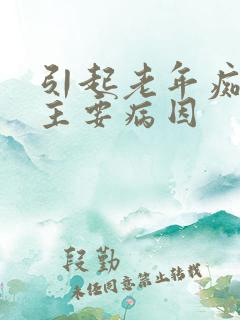 引起老年痴
主要病因
段勤
未经同意禁止转载